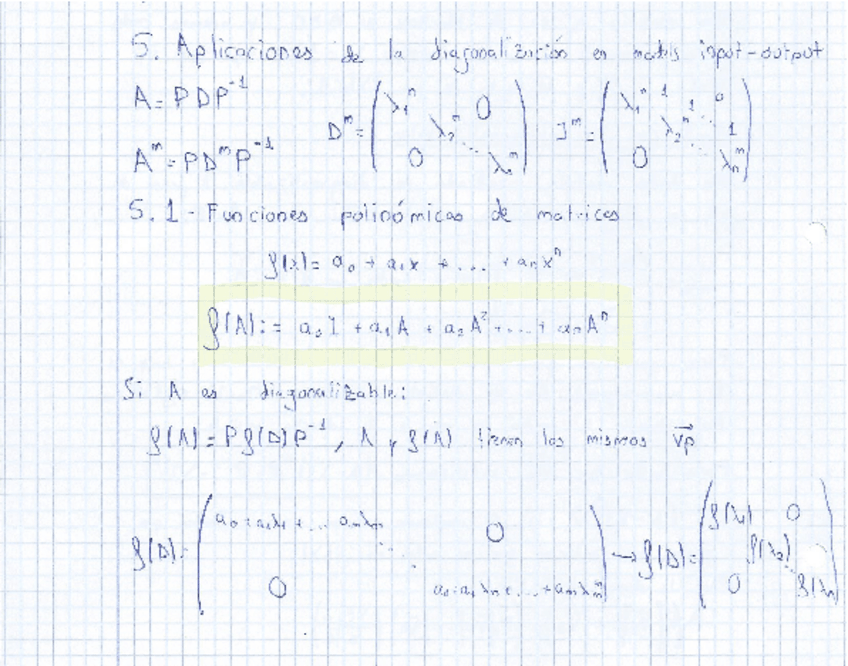 5. Aplicaciones de la diagonalización en matris input-output
A = PDP⁻¹
Aᵐ = PDᵐP⁻¹
Dᵐ = ( λ₁ⁿ λ₂ⁿ 0 0 ⋱ λₙⁿ )
Jᵐ = ( λ₁ⁿ 1 1 0 λ₂ⁿ ⋱ 1 0 λₙᵐ )
5.1 - Funciones polinómicas de matrices
f(x) = a₀ + a₁x + ... + aₙxⁿ
f(A) := a₀I + a₁A + a₂A² + ... + aₙAⁿ
Si A es diagonalizable:
f(A) = Pf(D)P⁻¹, A y f(A) tienen los mismos vp
f(D) = ( a₀ + a₁λ₁ + ... 0 ⋱ 0 ) → f(D) = ( f(λ₁) 0 f(λ₂) ⋱ 0 f(λₙ) )